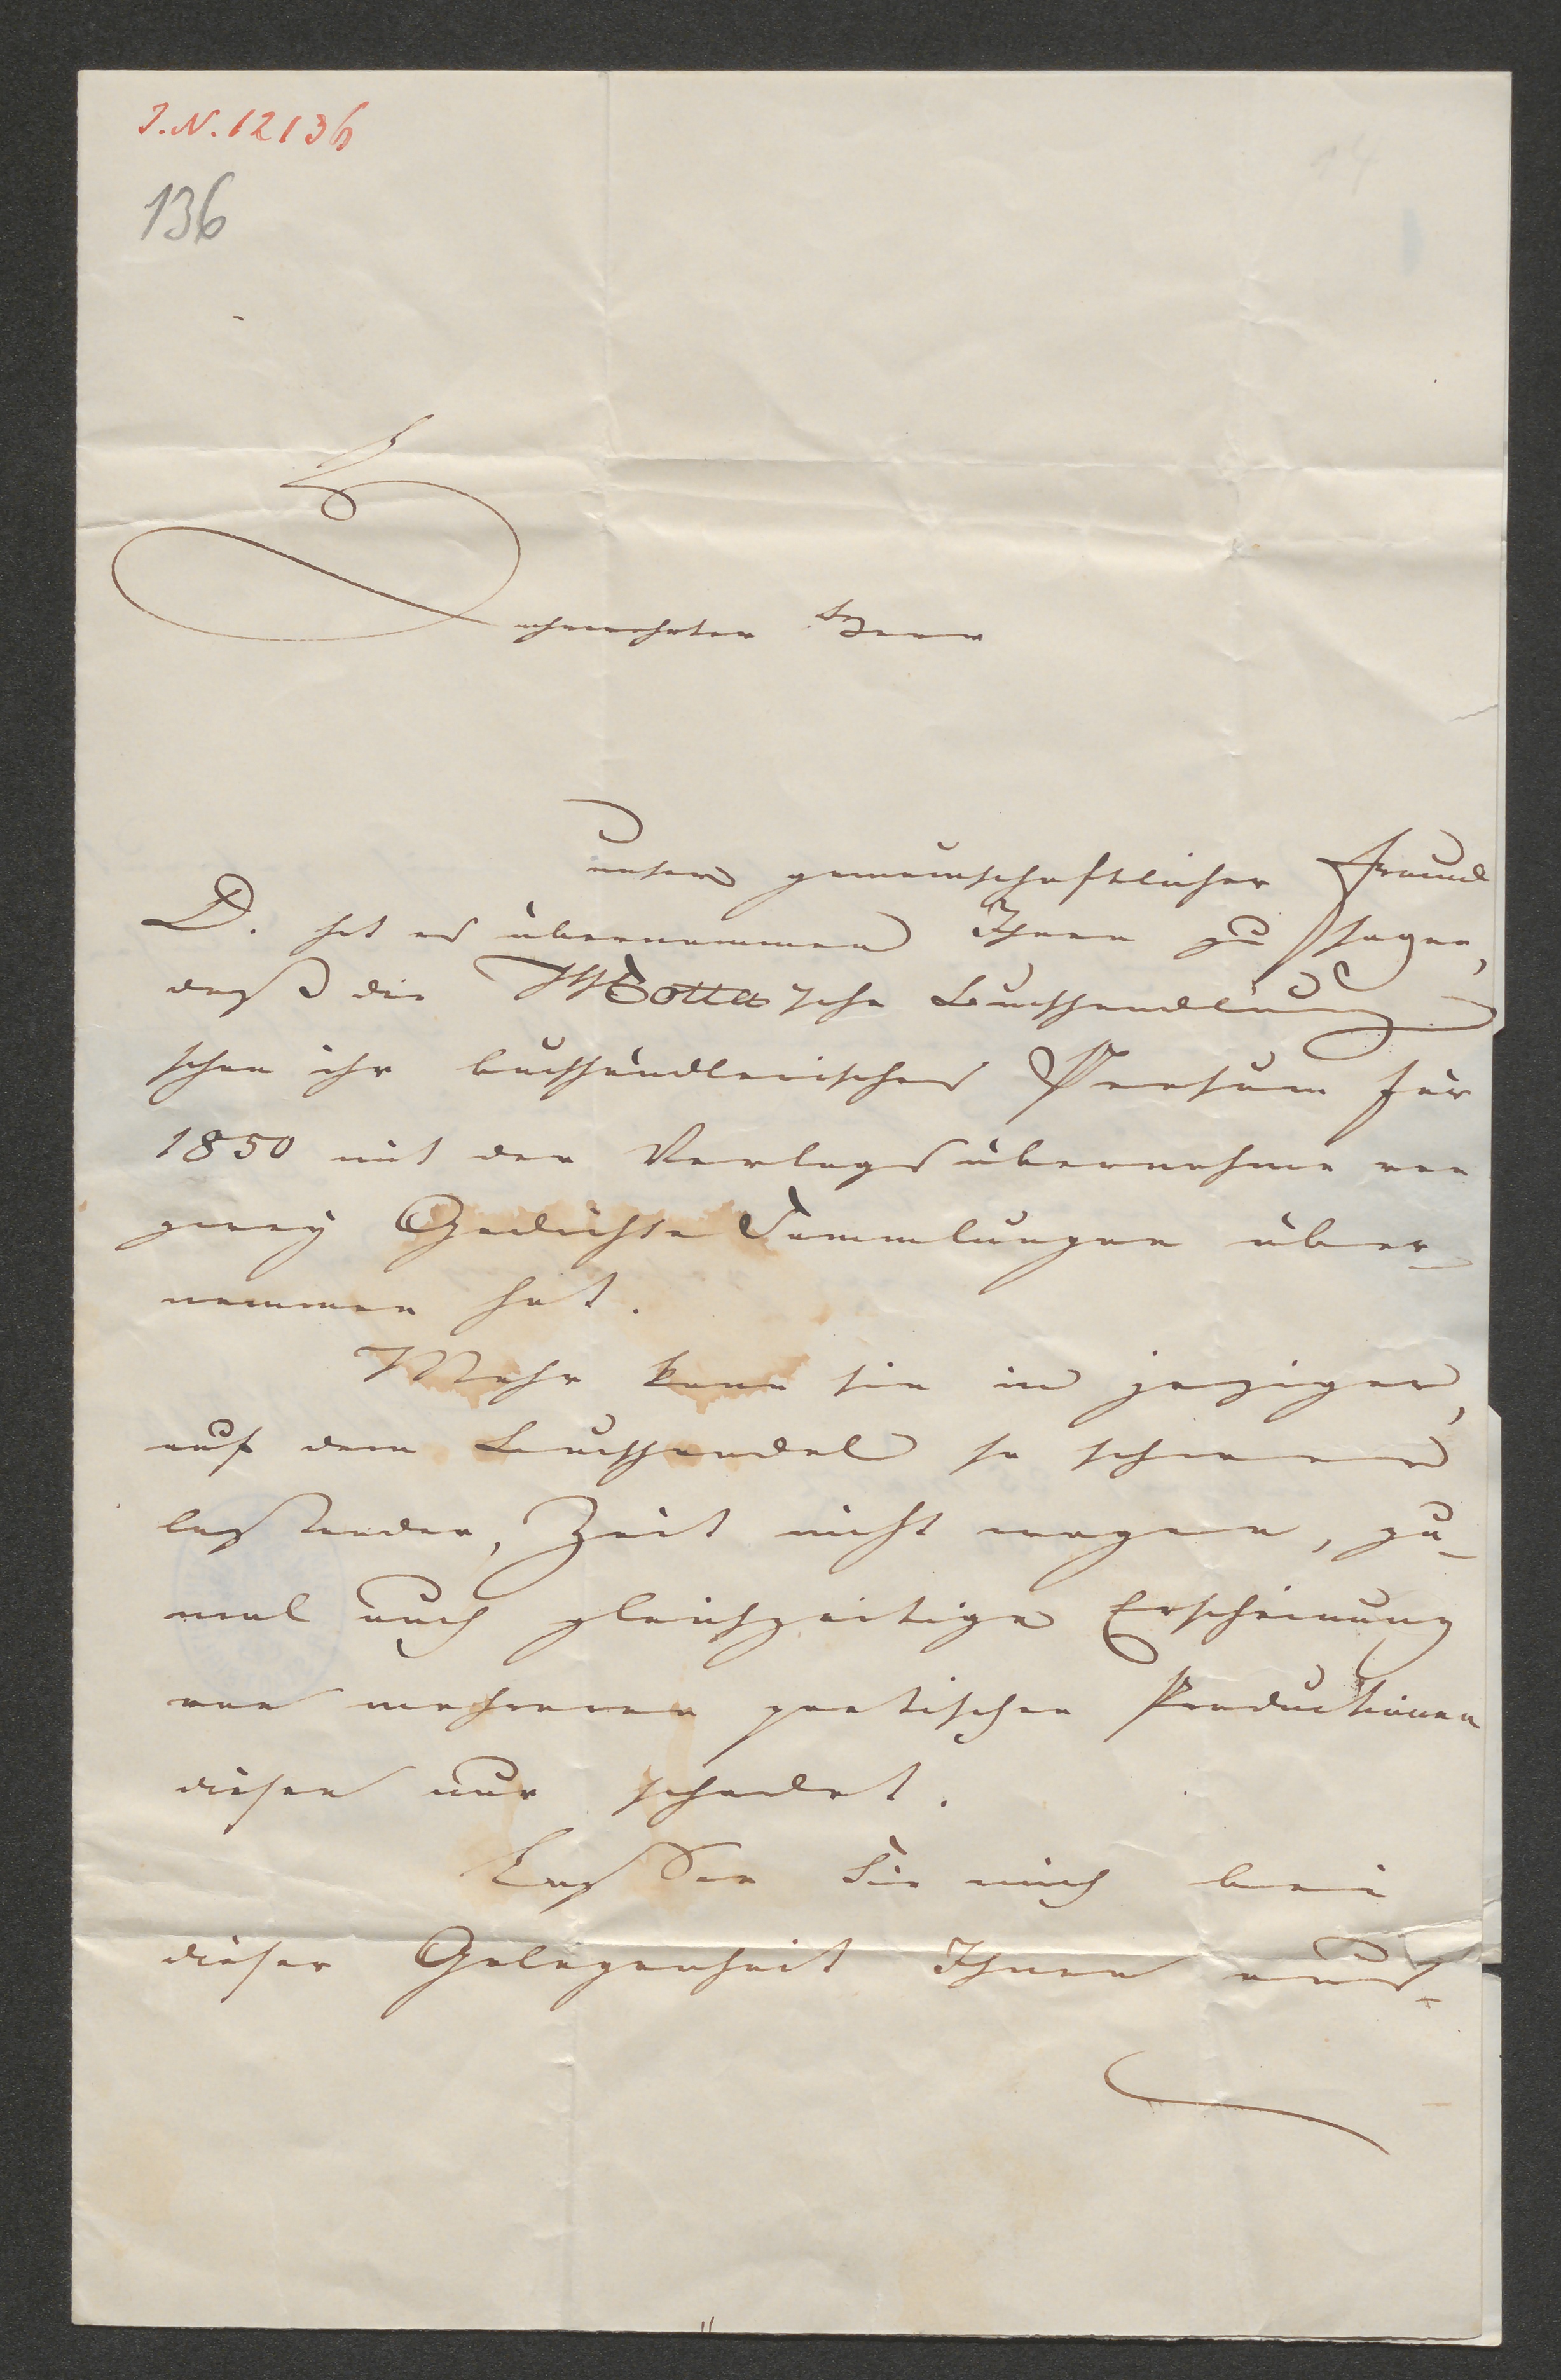 I.N. 12136
136
14
Hochverehrter Herr
unser gemeinschaftlicher Freund
D. hat es übernommen Ihnen zu sagen,
daß die Cotta'sche Buchhandlung
schon ihr buchhändlerisches Pensum für
1850 mit der Verlagsübernahme von
zwey Gedichte Sammlungen über-
nommen hat.
Mehr kann sie in jeziger,
auf dem Buchhandel so schwer
lastender, Zeit nicht wagen, zu-
mal auch gleichzeitige Erscheinung
von mehreren poetischen Productionen
diesen nur schadet.
Lassen Sie mich bei
dieser Gelegenheit Ihnen aus-